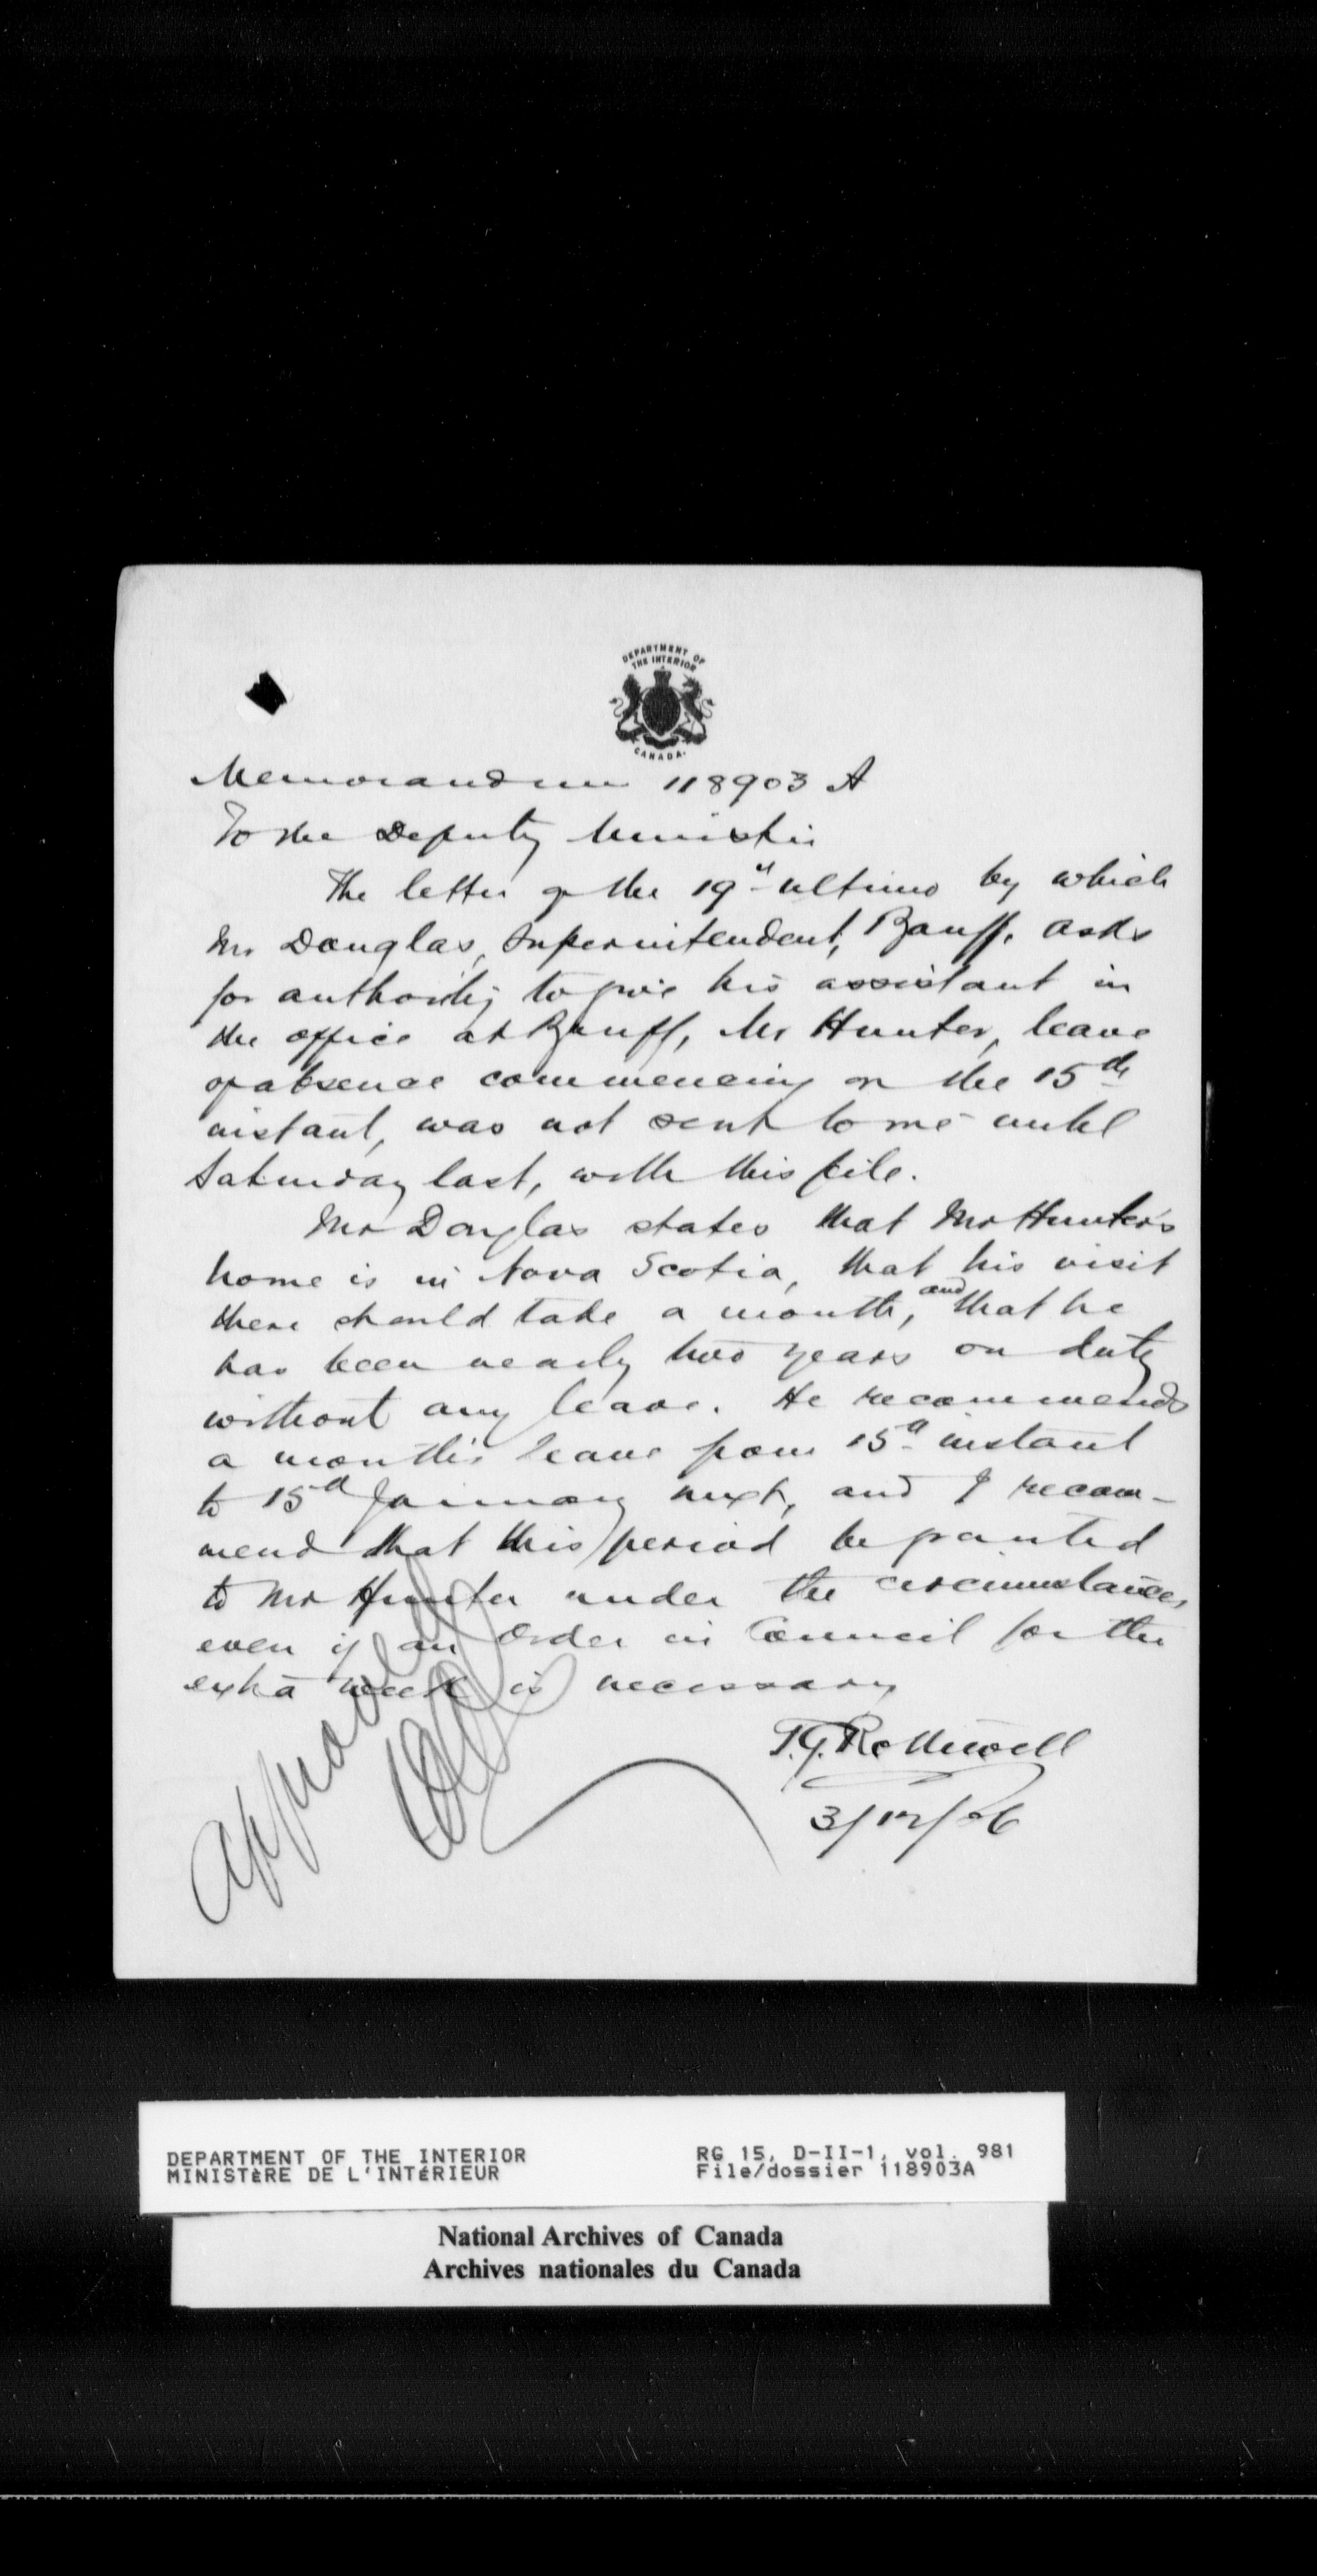 DEPARTMENT OF
THE INTERIOR
CANADA.
Memorandum 118903 A
To the Deputy Minister
The letter of the 19th ultimo by which
Mr Douglas, Superintendent, Banff, asks
for authority to give his assistant in
the office at Banff, Mr Hunter, leave
of absence commencing on the 15th
instant, was not sent to me until
Saturday last, with this file.
Mr Douglas states that Mr Hunter's
home is in Nova Scotia, that his visit
there should take a month, and that he
has been nearly two years on duty
without any leave. He recommends
a month's leave from 15th instant
to 15th January next, and I recom-
mend that this period be granted
to Mr Hunter under the circumstances,
even if an Order in Council for the
extra week is necessary
T.G. Rothwell
3/12/06
Approved
DEPARTMENT OF THE INTERIOR
MINISTÈRE DE L'INTÉRIEUR
RG 15, D-II-1, vol. 981
File/dossier 118903A
National Archives of Canada
Archives nationales du Canada